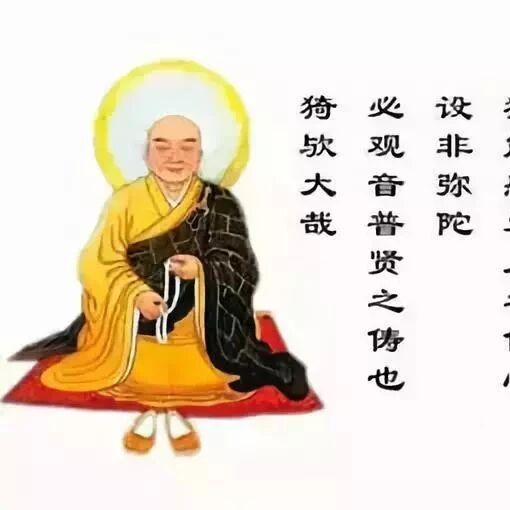 设非弥陀
必观音普贤之俦也
猗欤大哉